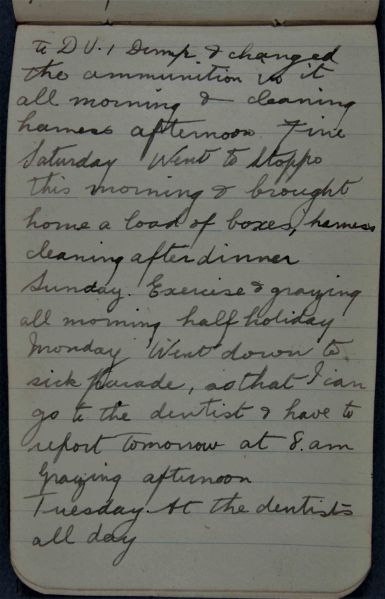 to D V. 1 Dump & changed
the ammunition in it
all morning & cleaning
harness afternoon. Fine
Saturday Went to Stopps
this morning & brought
home a load of boxes, harness
cleaning after dinner
Sunday. Exercise & grazing
all morning half holiday
Monday Went down to
sick parade, so that I can
go to the dentist & have to
report tomorrow at 8. am
Grazing afternoon
Tuesday. At the dentists
all day